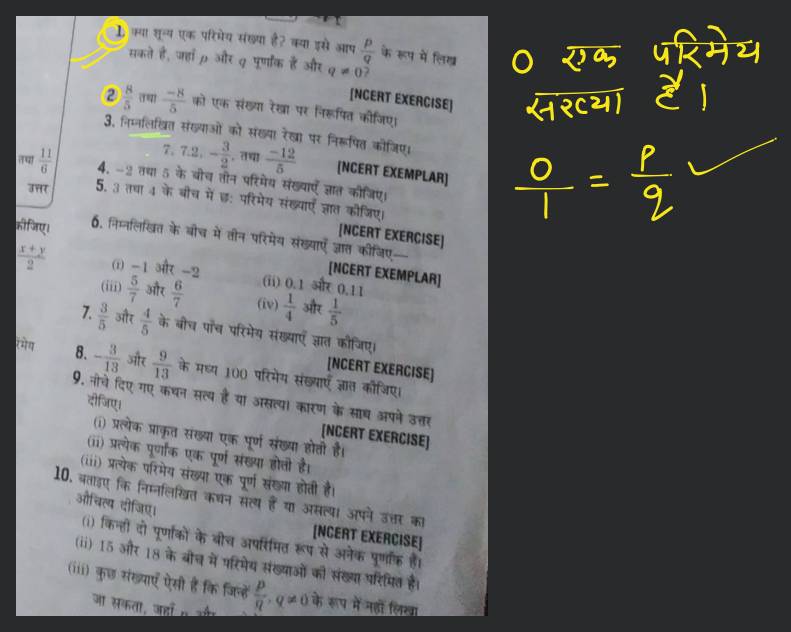 1. क्या शून्य एक परिमेय संख्या है? क्या इसे आप p/q के रूप में लिख
सकते हैं, जहाँ p और q पूर्णांक हैं और q ≠ 0?
[NCERT EXERCISE]
2. 8/5 तथा -8/5 को एक संख्या रेखा पर निरूपित कीजिए।
3. निम्नलिखित संख्याओं को संख्या रेखा पर निरूपित कीजिए।
7, 7.2, -3/2, तथा -12/5
[NCERT EXEMPLAR]
4. -2 तथा 5 के बीच तीन परिमेय संख्याएँ ज्ञात कीजिए।
5. 3 तथा 4 के बीच में छ: परिमेय संख्याएँ ज्ञात कीजिए।
[NCERT EXERCISE]
6. निम्नलिखित के बीच में तीन परिमेय संख्याएँ ज्ञात कीजिए—
[NCERT EXEMPLAR]
(i) -1 और -2 (ii) 0.1 और 0.11
(iii) 5/7 और 6/7 (iv) 1/4 और 1/5
7. 3/5 और 4/5 के बीच पाँच परिमेय संख्याएँ ज्ञात कीजिए।
[NCERT EXERCISE]
8. -3/13 और 9/13 के मध्य 100 परिमेय संख्याएँ ज्ञात कीजिए।
9. नीचे दिए गए कथन सत्य है या असत्य। कारण के साथ अपने उत्तर
दीजिए।
[NCERT EXERCISE]
(i) प्रत्येक प्राकृत संख्या एक पूर्ण संख्या होती है।
(ii) प्रत्येक पूर्णांक एक पूर्ण संख्या होती है।
(iii) प्रत्येक परिमेय संख्या एक पूर्ण संख्या होती है।
10. बताइए कि निम्नलिखित कथन सत्य हैं या असत्य। अपने उत्तर का
औचित्य दीजिए।
[NCERT EXERCISE]
(i) किन्हीं दो पूर्णांकों के बीच अपरिमित रूप से अनेक पूर्णांक हैं।
(ii) 15 और 18 के बीच में परिमेय संख्याओं की संख्या परिमित है।
(iii) कुछ संख्याएँ ऐसी है कि जिन्हें p/q, q ≠ 0 के रूप में नहीं लिखा
जा सकता, जहाँ p और
तथा 11/6
उत्तर
कीजिए।
x+y/2
0 एक परिमेय
संख्या है।
0/1 = p/q ✓